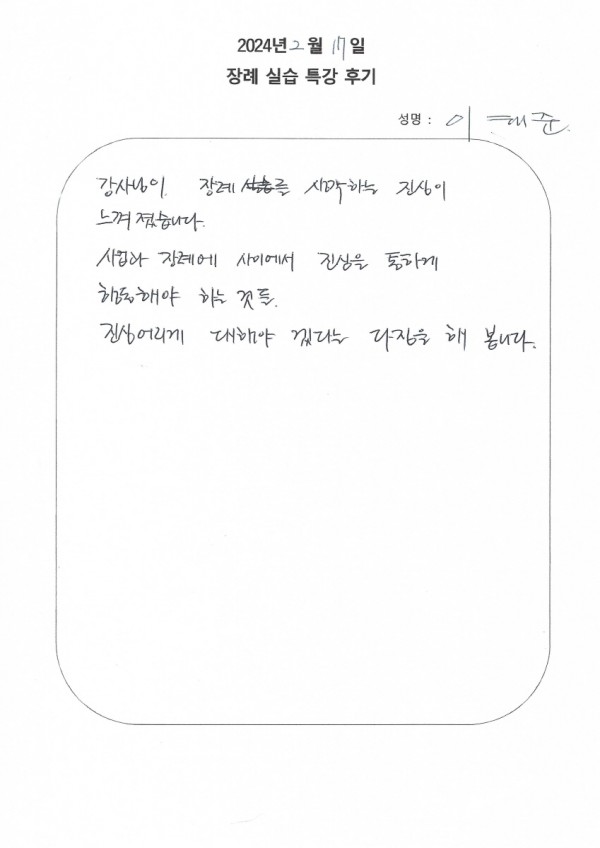 2024년 2월 17일
장례 실습 특강 후기
성명 : 이 준
강사님이 장례 를 시작하는 진심이
느껴 졌습니다.
사업과 장례에 사이에서 진심을 통하게
행동해야 하는 것들.
진심어리게 대해야 겠다는 다짐을 해 봅니다.